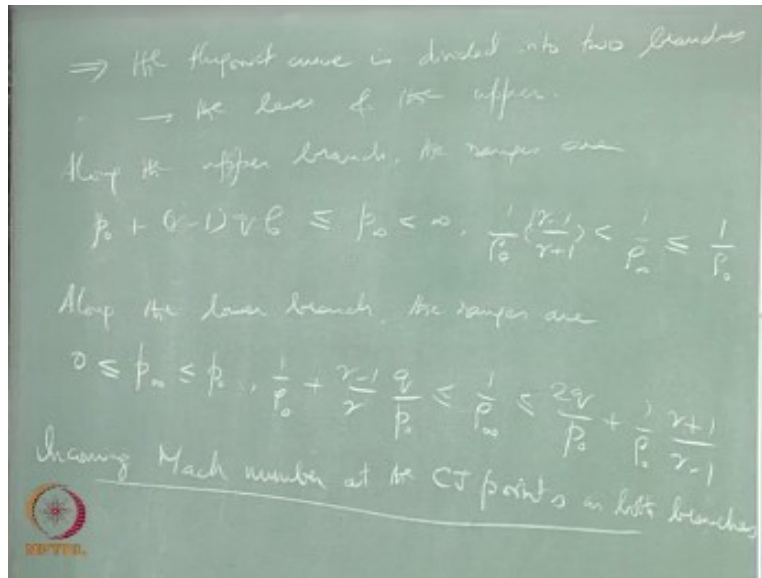 ⇒ the Hugoniot curve is divided into two branches
→ the lower & the upper.
Along the upper branch, the ranges are
p₀ + (γ-1) q ρ₀ ≤ p∞ < ∞, 1/ρ₀ (γ-1/γ+1) < 1/ρ∞ ≤ 1/ρ₀
Along the lower branch, the ranges are
0 ≤ p∞ ≤ p₀, 1/ρ₀ + γ-1/γ q/p₀ ≤ 1/ρ∞ ≤ 2q/p₀ + 1/ρ₀ γ+1/γ-1
Incoming Mach number at the CJ points in both branches
NPTEL